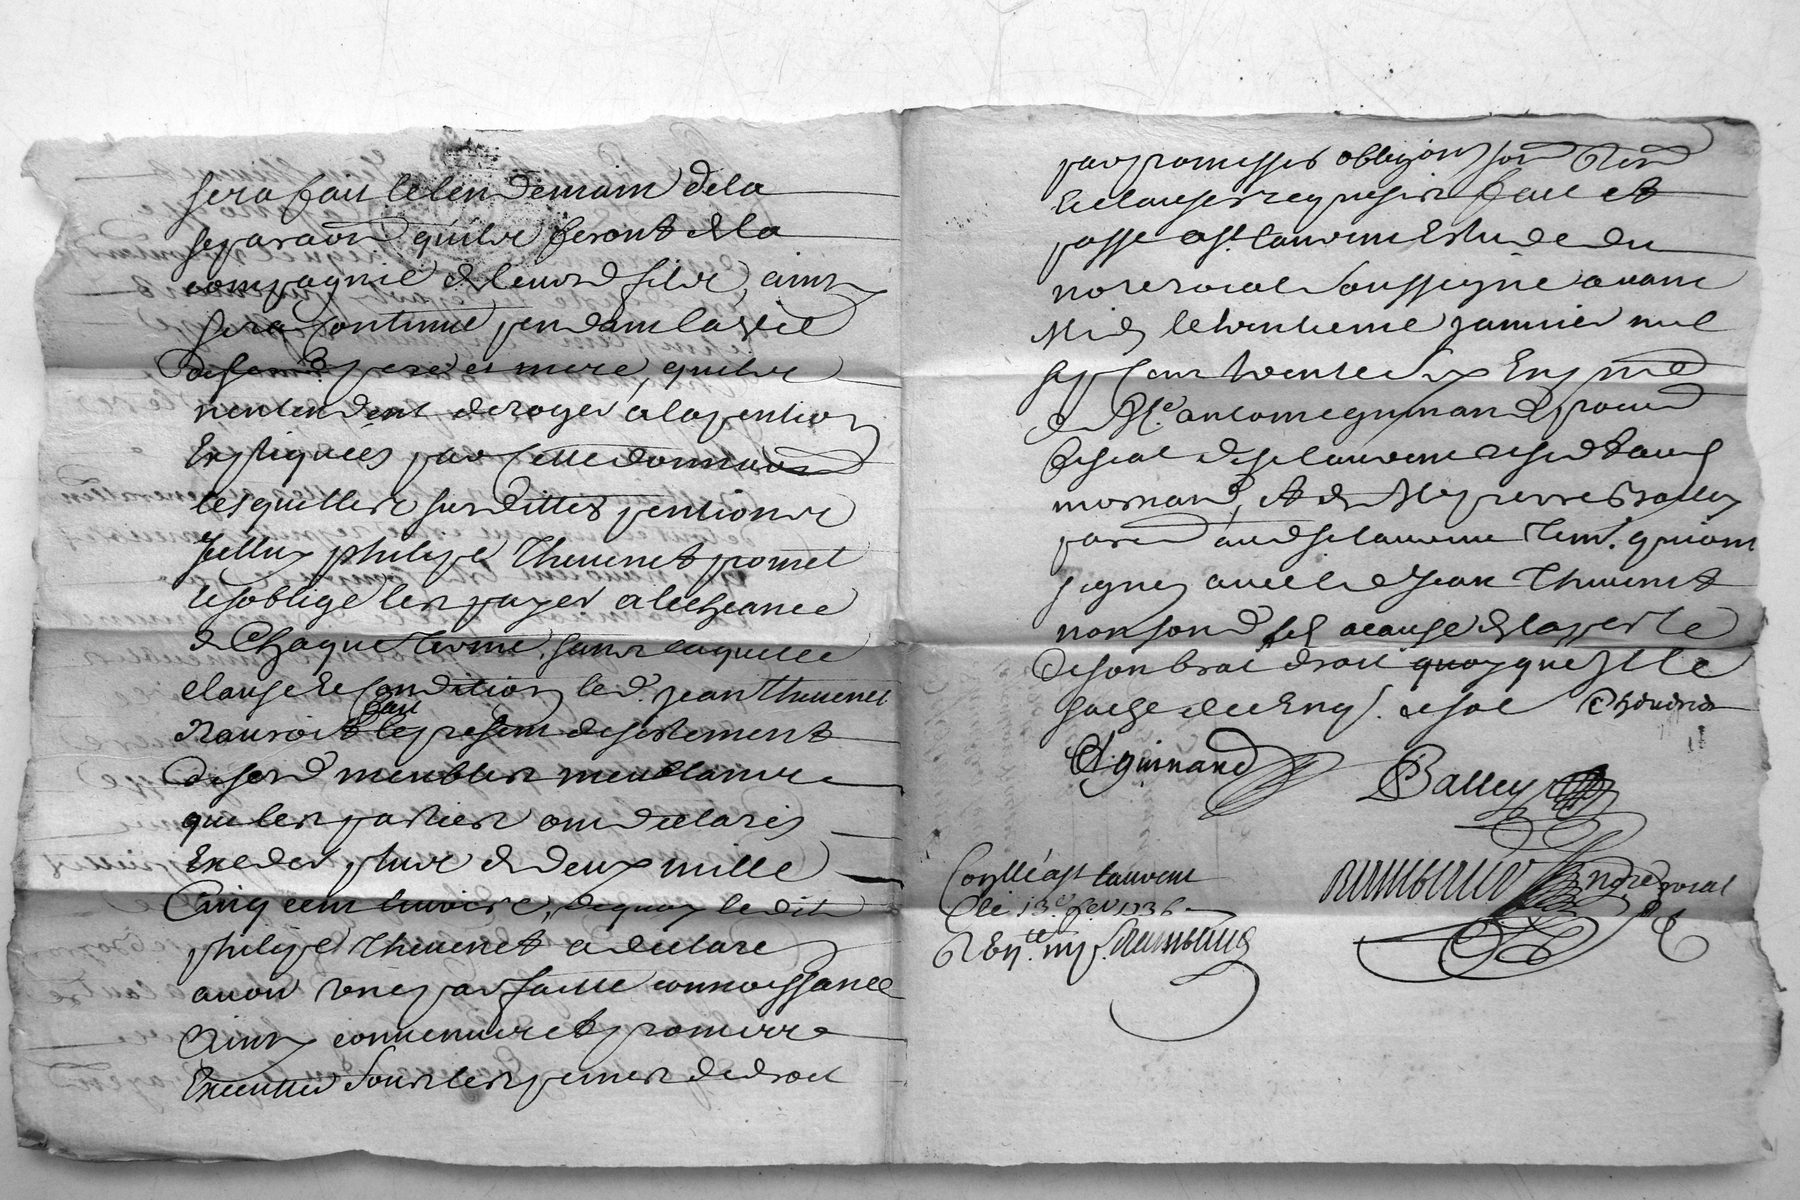 sera fait le lendemain dela
separaon quilz feront de la
compagnie de leurd filz, ainy
sera continué pendant la vie
desd pere et mere, quilz
nentendent deroger a la pention
Expliquéés par cette donnaon
lesquelles susdittes pentions
Jcelluy philipe Thevenet promet
Et soblige les payer a lecheance
de Chaque terme, sans laquelle
clause Et condition led. jean Thevenet
Nauroit fait le present desistement
desd meubles meublants
que les parties ont declarés
Exceder plus de deux mille
Cinq cent livres, dequoy ledit
philipe Thevenet a declaré
avoir Une parfaitte connoissance
Ainsy convenu et promis
Executter Sous les peines de droit
par promesses obligaon
Et clauses requises fait et
passé a st laurent Estude du
nore roial Soussigné avant
Midy le trentieme janvier mil
sept cent trente six En pnce
de Me. antoine guinand procur
fiscal de st laurent
mornand, Et de Me pierre Balley
aud st laurent Tem. qui ont
signé avec led Jean Thevenet
non sond fils a cause de la perte
de son bras droit quoyque
de ce Enq.
A guinand
Balley
Raimbaud nore roial
Conllé a st laurent
Le 13e fev 1736
Raimbaud